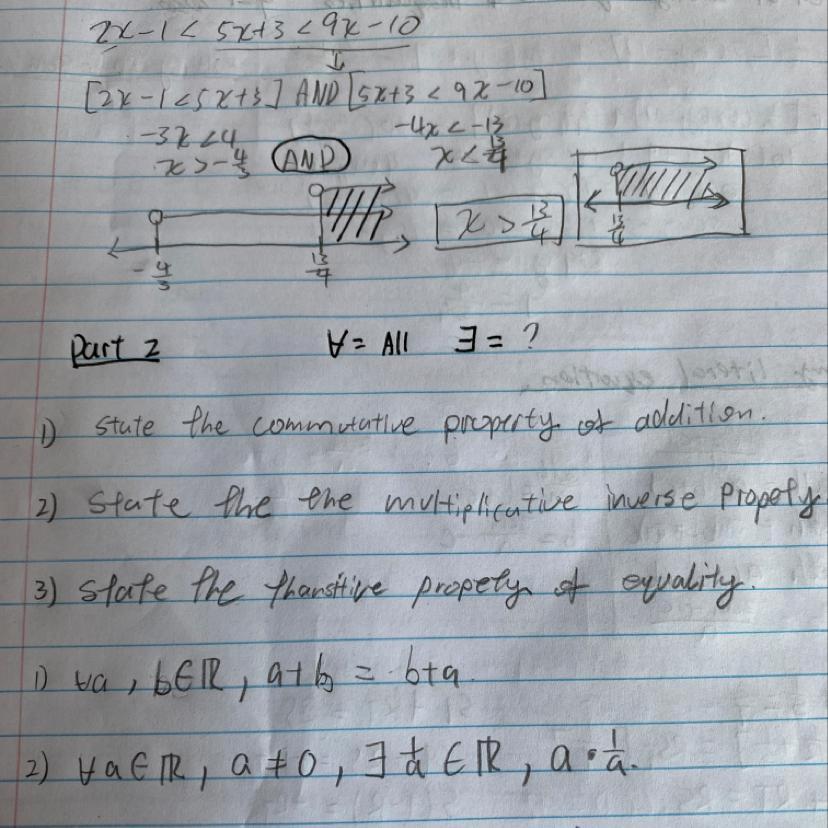 2x-1 < 5x+3 < 9x-10
↓
[2x-1 < 5x+3] AND [5x+3 < 9x-10]
-3x < 4 -4x < -13
x > -4/3 AND x < 13/4
x > 13/4
-4/3 13/4 13/4
Part 2 ∀ = All ∃ = ?
1) state the commutative property of addition.
2) state the the multiplicative inverse Propety
3) state the transitive propety of equality.
1) ∀a, b∈ℝ, a+b = b+a.
2) ∀a∈ℝ, a≠0, ∃ 1/a ∈ℝ, a·1/a.